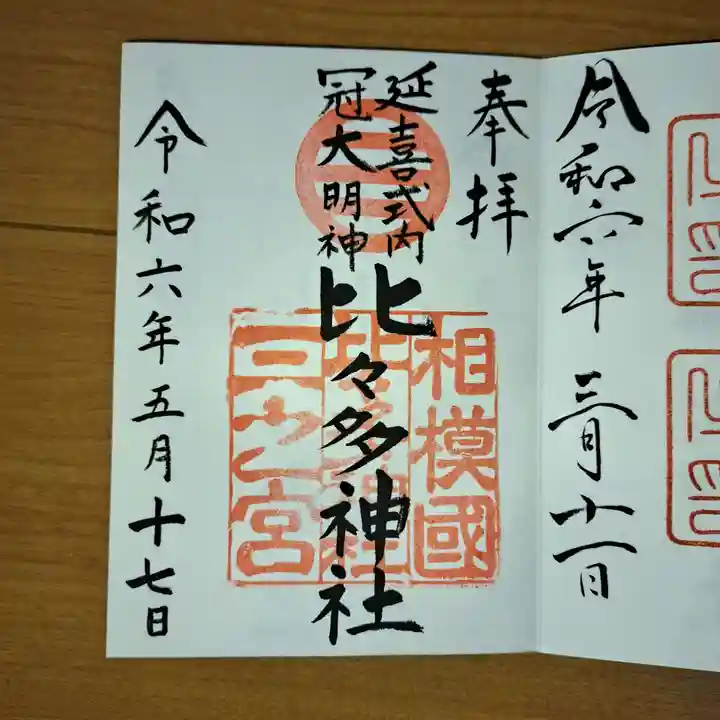 令和六年 三月
奉拝
延喜式内
冠大明神
比々多神社
相模國
三之宮
令和六年五月十七日